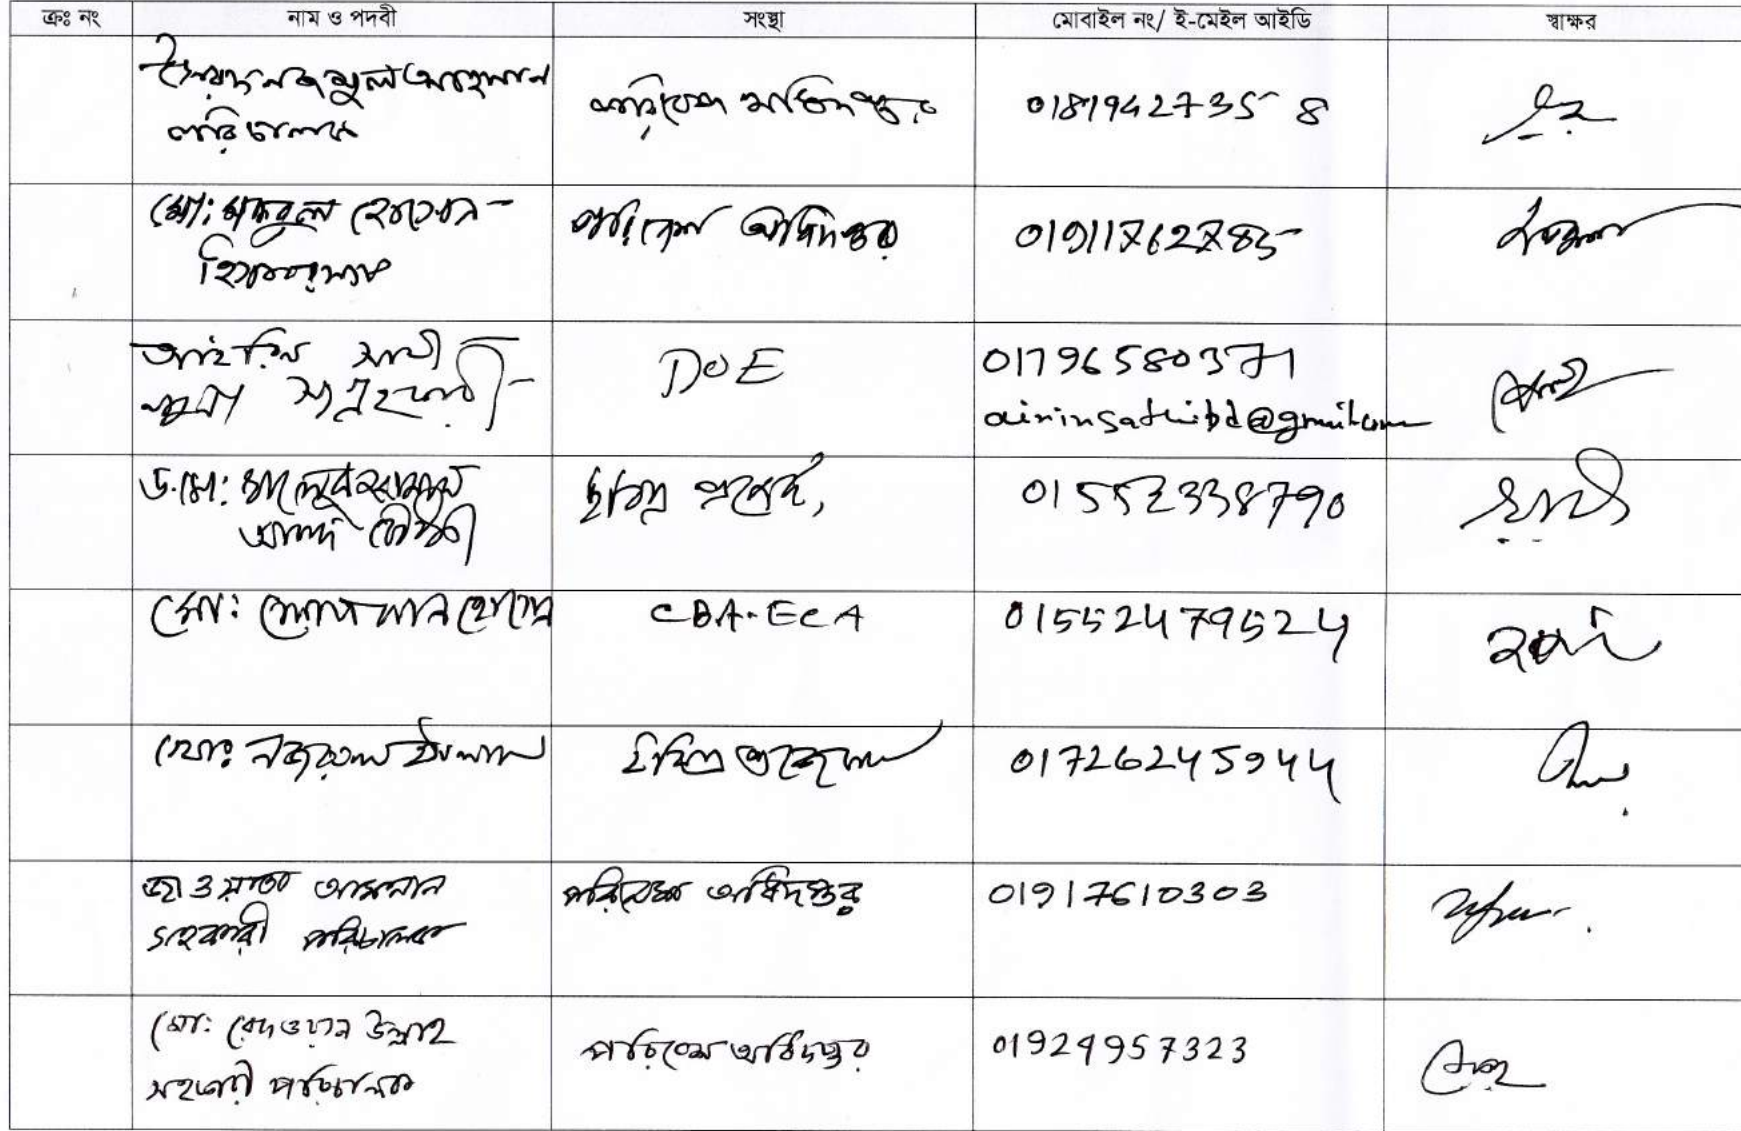 ক্রঃ নং নাম ও পদবী সংস্থা মোবাইল নং/ ই-মেইল আইডি স্বাক্ষর
সৈয়দ নজমুল আহসান
পরিচালক
পরিবেশ অধিদপ্তর
01819427358
মো: মকবুল হোসেন
হিসাবরক্ষক
পরিবেশ অধিদপ্তর
01911762785
আইরিন সাথী
নমুনা সংগ্রহকারী
DOE
01796580371
aininsathibd@gmail.com
ড. মো:
চৌধুরী
01552338790
মো: হোসেন
CBA-ECA
01552479524
মোঃ নজরুল ইসলাম
01726245944
জাওয়াতা আফনান
সহকারী পরিচালক
পরিবেশ অধিদপ্তর
01917610303
মো: রেদওয়ান উল্লাহ
সহকারী পরিচালক
পরিবেশ অধিদপ্তর
01924957323